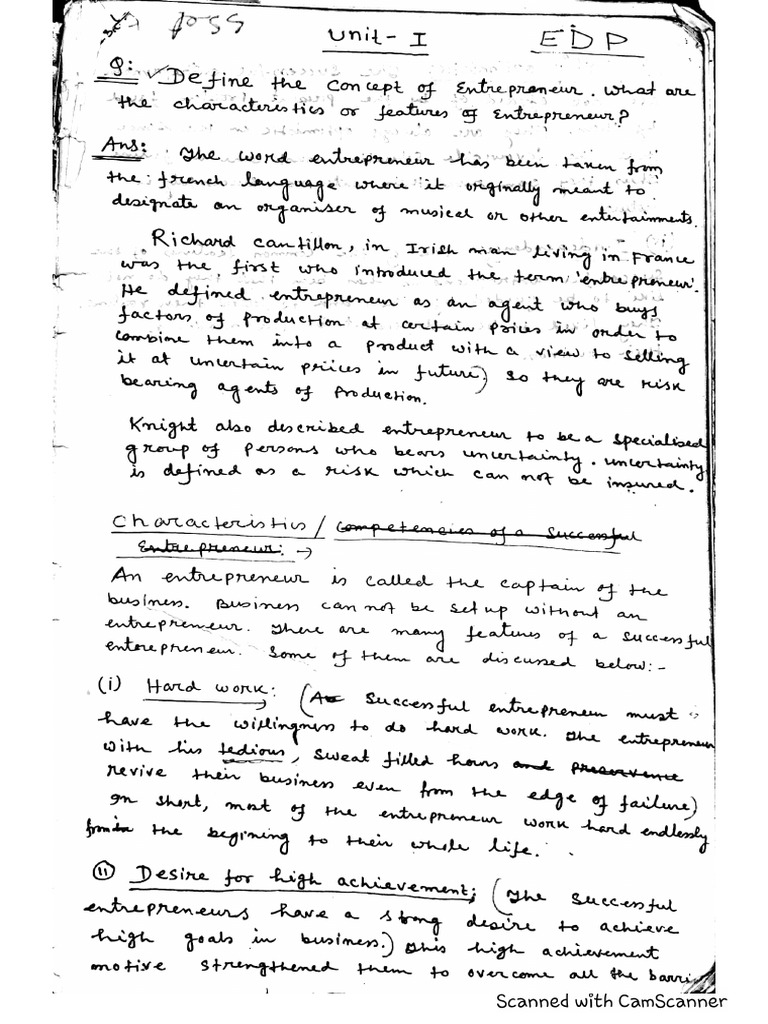 Unit- I EDP
Q: Define the concept of Entrepreneur. What are
the characteristics or features of Entrepreneur?
Ans: The word entrepreneur has been taken from
the french language where it originally meant to
designate an organiser of musical or other entertainments.
Richard cantillon, in Irish man living in France
was the first who introduced the term 'entrepreneur'.
He defined entrepreneur as an agent who buys
factors of production at certain prices in order to
combine them into a product with a view to selling
it at uncertain prices in future) so they are risk
bearing agents of production.
Knight also described entrepreneur to be a specialised
group of persons who bears uncertainty. uncertainty
is defined as a risk which can not be insured.
Characteristics / competencies of a successful
Entrepreneur: →
An entrepreneur is called the captain of the
business. Business can not be set up without an
entrepreneur. There are many features of a successful
entrepreneur. Some of them are discussed below:-
(i) Hard work: (A successful entrepreneur must
have the willingness to do hard work. The entrepreneur
with his tedious, sweat filled hours and
revive their business even from the edge of failure)
In short, most of the entrepreneur work hard endlessly
from the begining to their whole life.
(ii) Desire for high achievement; (The successful
entrepreneurs have a strong desire to achieve
high goals in business.) This high achievement
motive strengthened them to overcome all the barri
Scanned with CamScanner